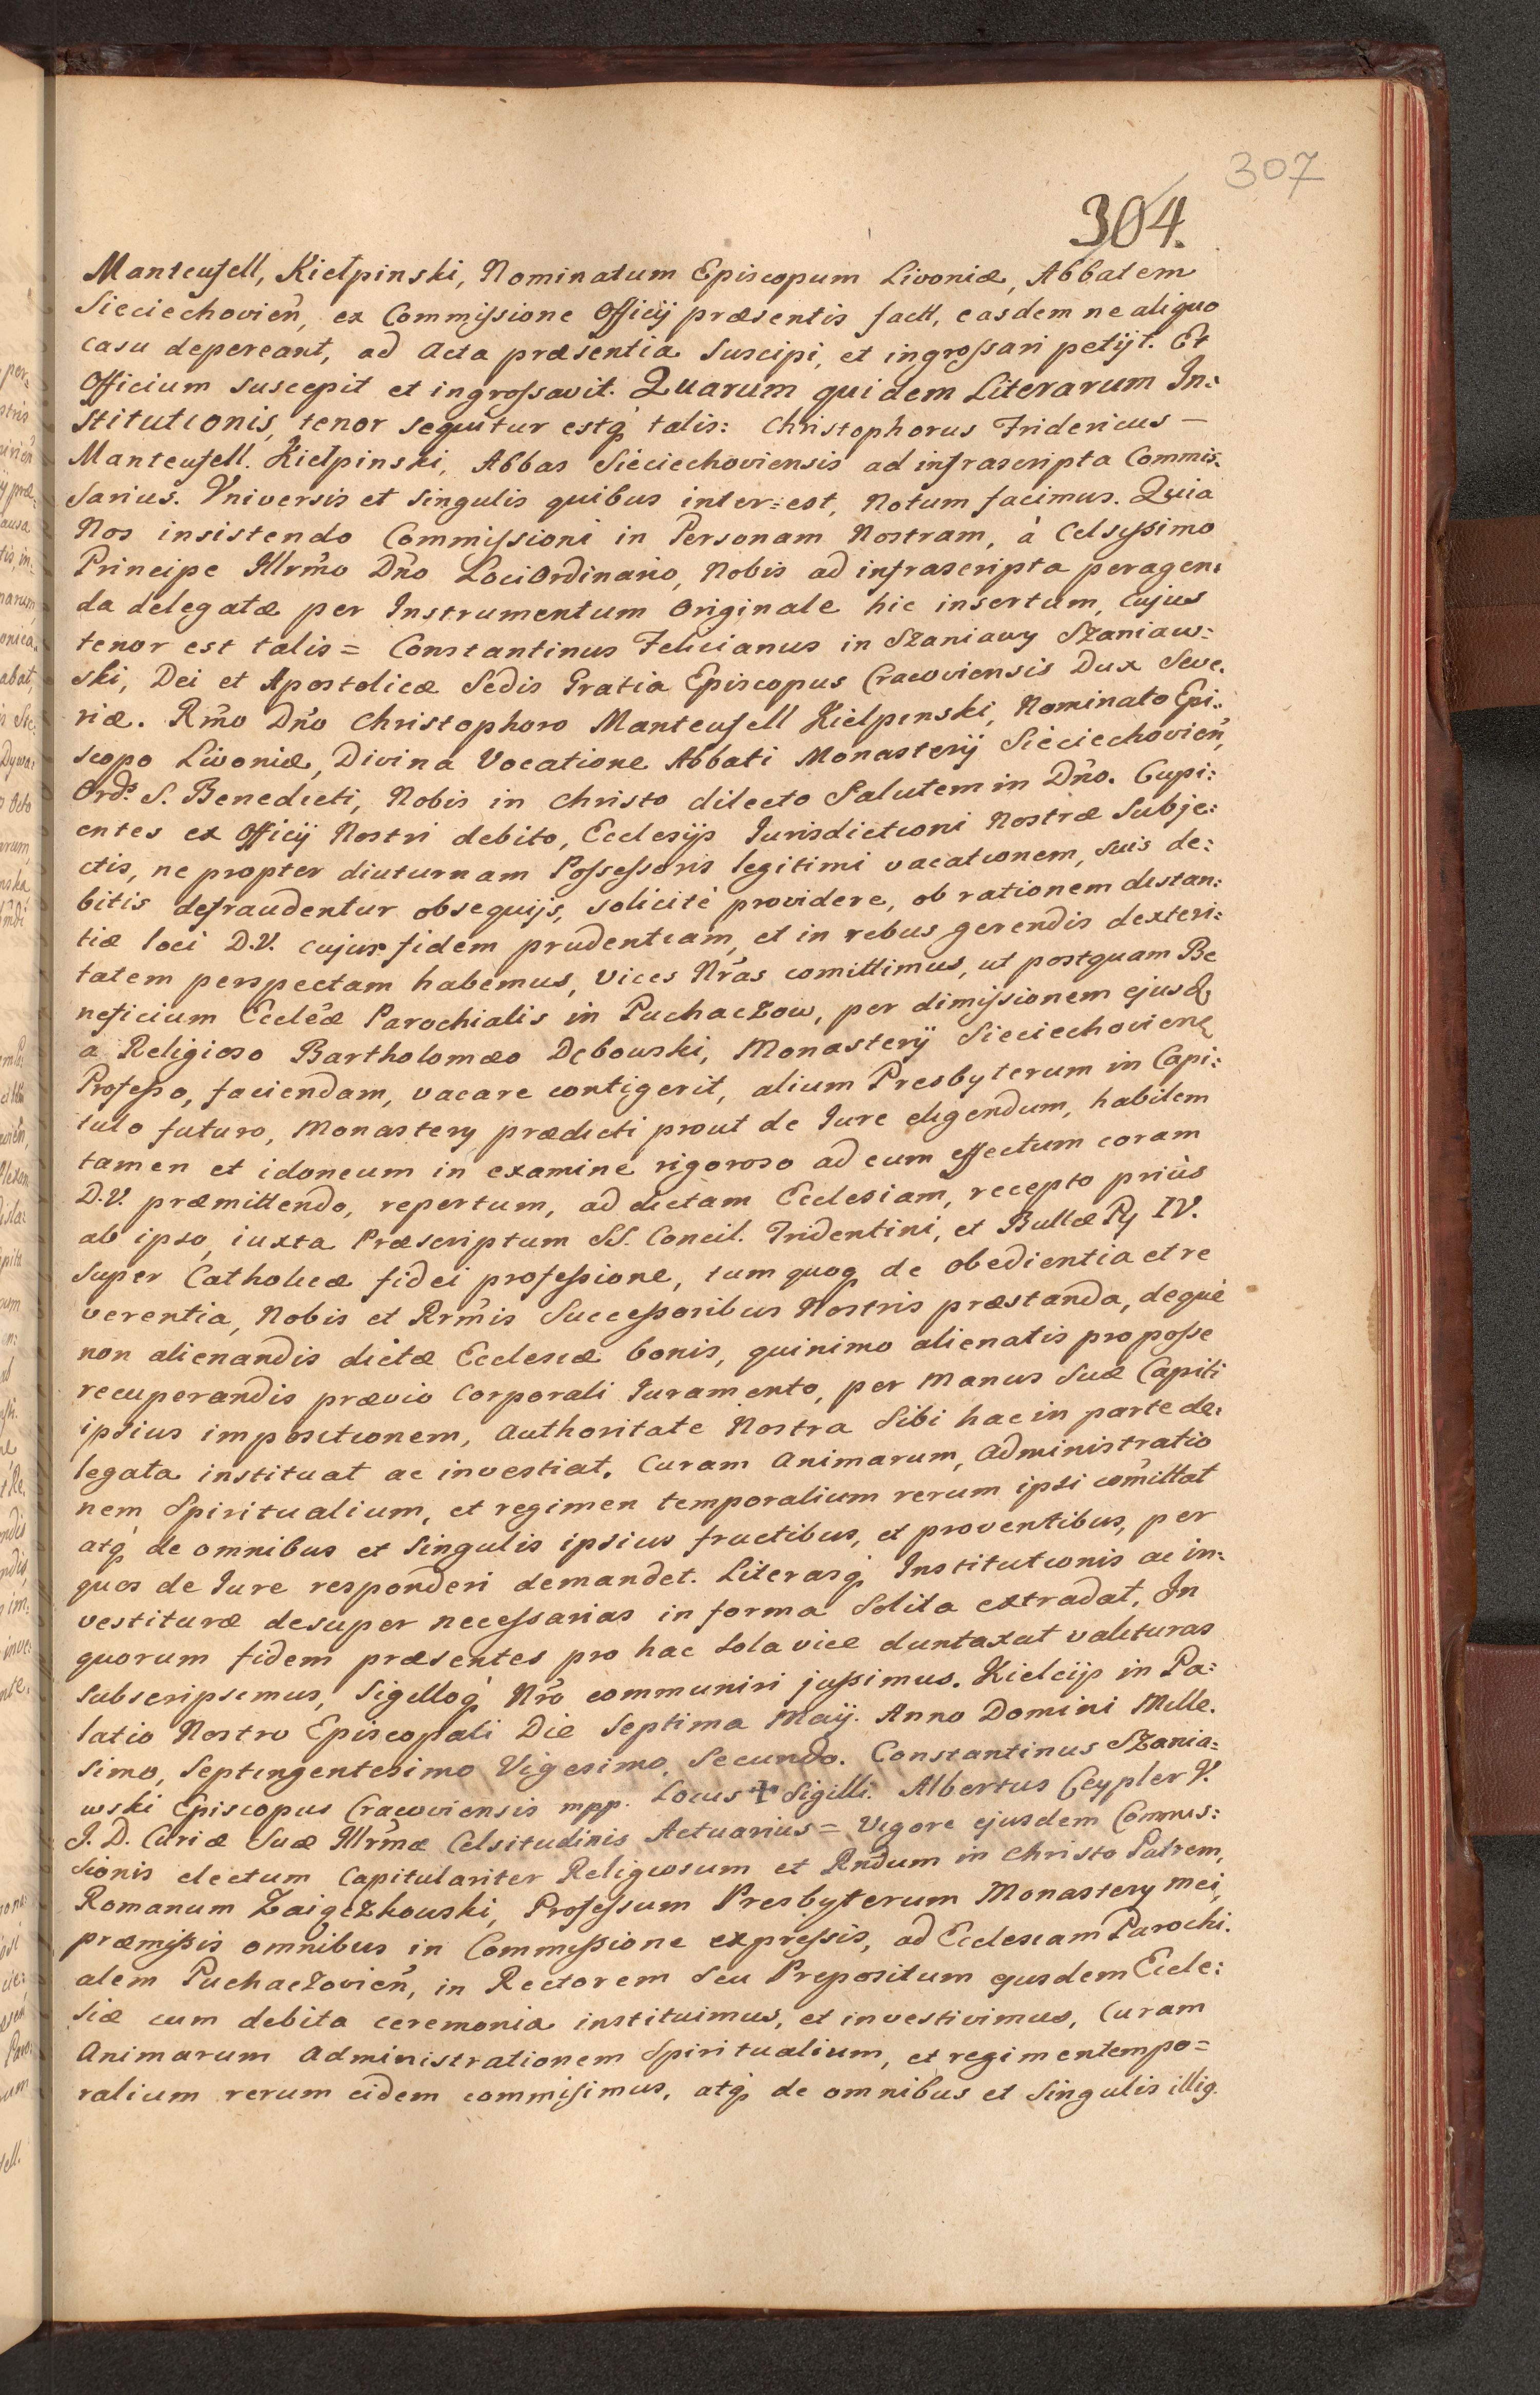 307
304.
Manteufell, Kiełpinski, Nominatum Episcopum Livoniæ, Abbatem
Sieciechovień, ex Commissione Officij præsentis factt, easdem ne aliquo
casu depereant, ad Acta præsentia suscipi, et ingrossari petijt. Et
Officium suscepit et ingrossavit. Quarum quidem Literarum In:
stitutionis, tenor sequitur estq́ talis: Christophorus Fridericus —
Manteufell. Kiełpinski, Abbas Sieciechoviensis ad infrascripta Commis:
sarius. Universis et singulis quibus inter:est, Notum facimus. Quia
Nos insistendo Commissioni in Personam Nostram, à Celsissimo
Principe Illrm̃o Dño Loci Ordinario, Nobis ad infrascripta peragen:
da delegatæ per Instrumentum Originale hic insertum, cujus
tenor est talis = Constantinus Felicianus in Szaniawy Szaniaw:
ski, Dei et Apostolicæ Sedis Gratia Episcopus Cracoviensis Dux Seve:
riæ. Rm̃o Dño Christophoro Manteufell Kiełpenski, Nominato Epi:
scopo Livoniæ, Divina Vocatione Abbati Monasterij Sieciechovień,
Ord: S. Benedicti, Nobis in Christo dilecto Salutem in Dño. Cupi:
entes ex Officij Nostri debito, Ecclesijs Iurisdictioni Nostræ Subje:
ctis, ne propter diuturnam Possessoris legitimi vacationem, suis de:
bitis defraudentur obsequijs, solicitè providere, ob rationem distan:
tiæ loci D.V. cujus fidem prudentiam, et in rebus gerendis dexteri:
tatem perspectam habemus, vices Nr̃as comittimus, ut postquam Be
neficium Eccleæ Parochialis in Puchaczow, per dimissionem ejusd
a Religioso Bartholomæo Dębowski, Monasterij Sieciechovien
Professo, faciendam, vacare contigerit, alium Presbyterum in Capi:
tulo futuro, Monastery prædicti prout de Iure eligendum, habilem
tamen et idoneum in examine rigoroso ad eum effectum coram
D.V. præmittendo, repertum, ad dictam Ecclesiam, recepto priùs
ab ipso, iuxta Præscriptum SS. Concil. Tridentini, et Bullæ Pij IV.
super Catholicæ fidei professione, tum quoq de obedientia et re
verentia, Nobis et Rrm̃is Successoribus Nostris præstanda, dequè
non alienandis dictæ Ecclesiæ bonis, quinimo alienatis pro posse
recuperandis prævio Corporali Iuramento, per Manus Suæ Capiti
ipsius impositionem, Authoritate Nostra Sibi hac in parte de:
legata instituat ac investiat, Curam Animarum, Administratio
nem Spiritualium, et regimen temporalium rerum ipsi com̃ittat
atq́ de omnibus et Singulis ipsius fructibus, et proventibus, per
quos de Iure responderi demandet. Literasq́ Institutionis ac in:
vestituræ desuper necessarias in forma Solita extradat. In
quorum fidem præsentes pro hac sola vice duntaxat valituras
subscripsimus, Sigilloq́ Nr̃o communiri jussimus. Kielcijs in Pa:
latio Nostro Episcopali Die Septima Maij. Anno Domini Mille.
simo, Septingentesimo Vigesimo, Secundo. Constantinus Szania:
wski Episcopus Cracoviensis mpp. Locus + Sigilli. Albertus Ceypler V.
J. D. Curiæ Suæ Illrm̃æ Celsitudinis Actuarius = Vigore ejusdem Commis:
sionis electum Capitulariter Religiosum et Rndum in Christo Patrem,
Romanum Zaigczkowski, Professum Presbyterum Monastery mei,
præmissis omnibus in Commissione expressis, ad Ecclesiam Parochi.
alem Puchaczovień, in Rectorem seu Prepositum ejusdem Eccle:
siæ cum debita ceremonia instituimus, et investivimus, Curam
Animarum Administrationem Spiritualium, et regimen tempo=
ralium rerum eidem commisimus, atq́ de omnibus et Singulis illig